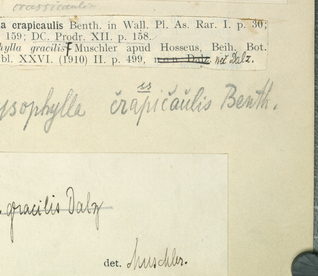 crassicaulis
a crapicaulis Benth. in Wall. Pl. As. Rar. I. p. 30;
159; DC. Prodr. XII. p. 158.
hylla gracilis Muschler apud Hosseus, Beih. Bot.
bl. XXVI. (1910) II p. 499, non Dalz. nec Dalz.
ss
ysophylla crapicaulis Benth.
gracilis Dalz
det. Muschler.